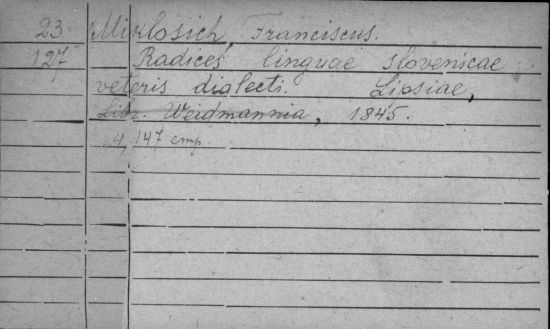 23 Miklosich, Franciscus.
127 Radices linguae slovenicae
veteris dialecti. Lipsiae,
Libr. Weidmannia, 1845.
4, 147 cmp.